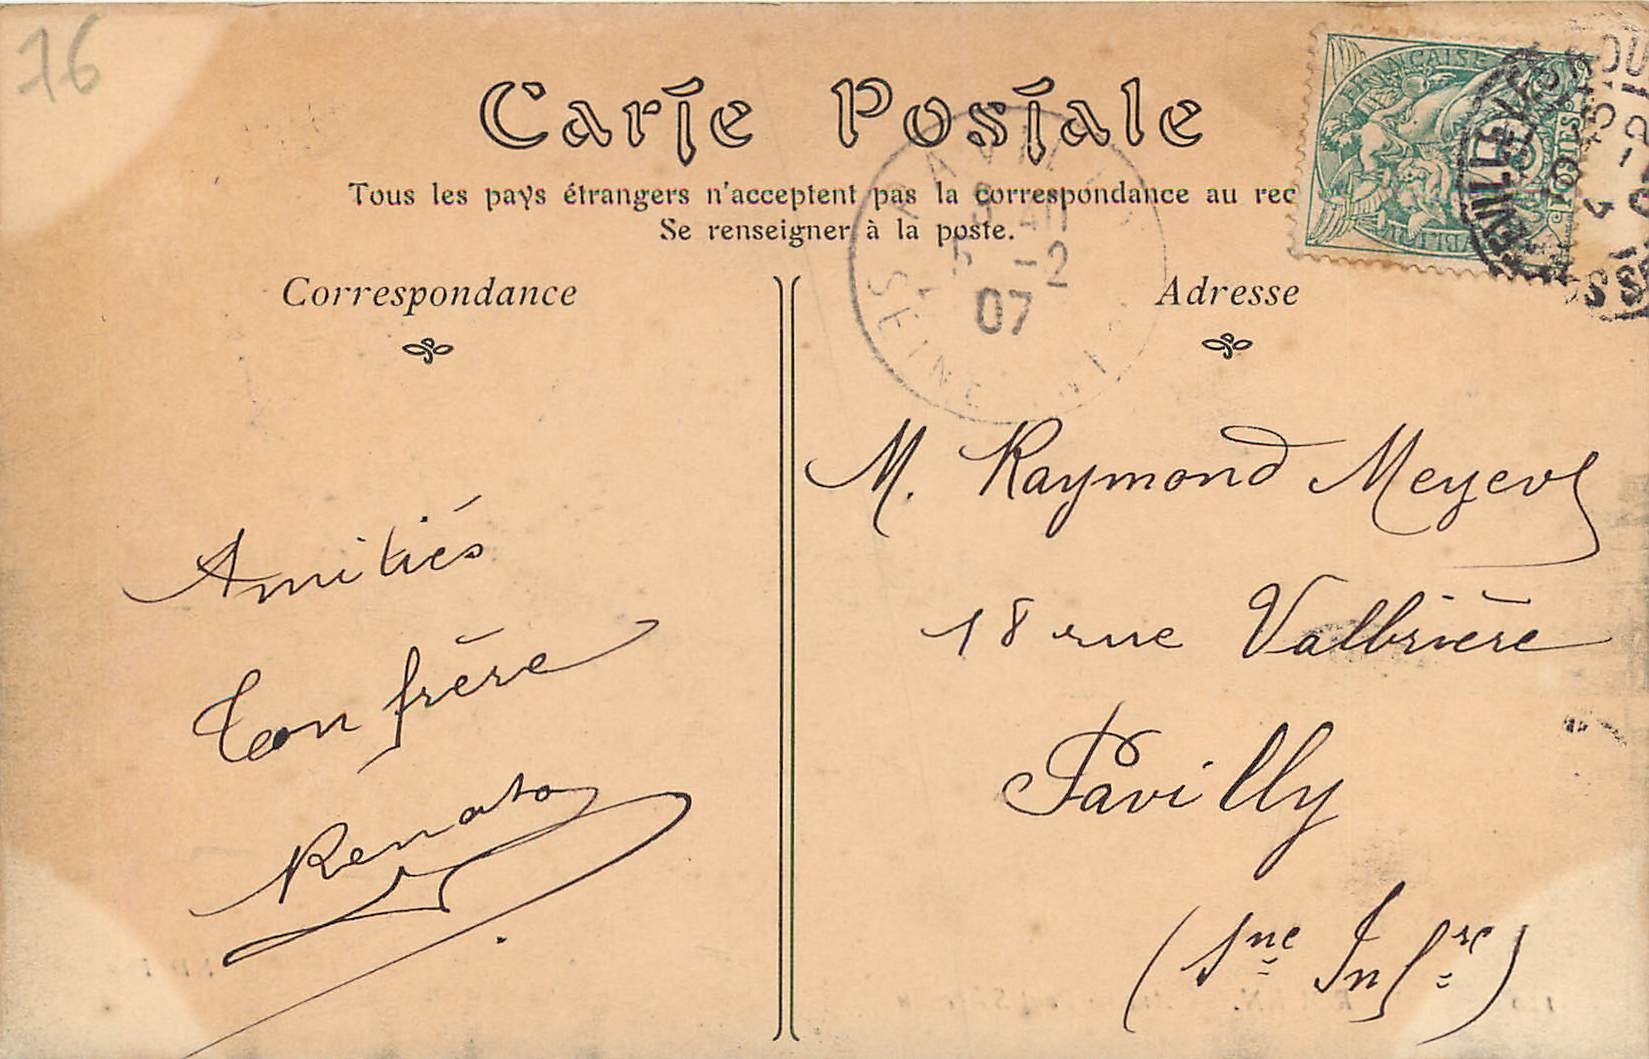 76
Carte Postale
Tous les pays étrangers n'acceptent pas la correspondance au rec
Se renseigner à la poste.
Correspondance
Adresse
PAVILLY
5 -2
07
SEINE
FRANÇAISE
Amitiés
Ton frère
Renato
M. Raymond Meyer
18 rue Valbrière
Pavilly
(Sne Infre)